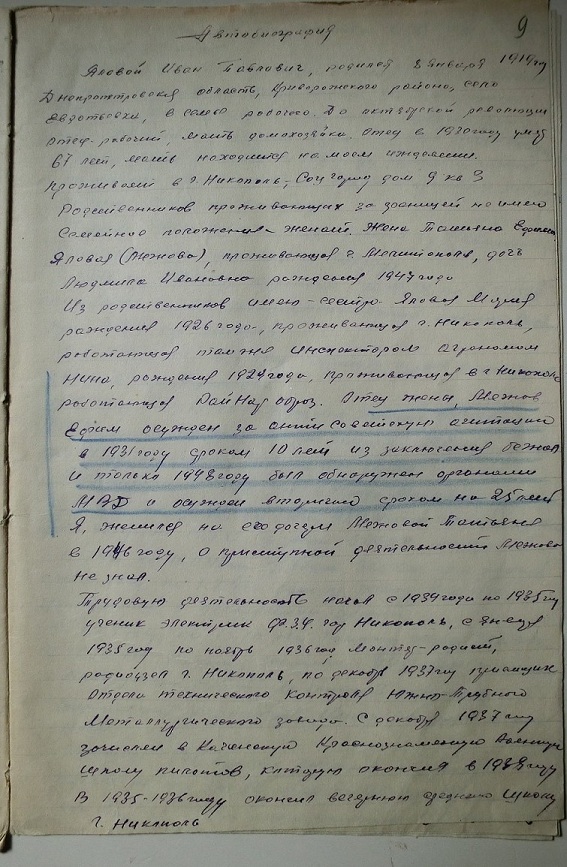 9
Автобиография
Яловой Иван Павлович, родился 8 января 1919 году
Днепропетровская область, Криворожского района, село
в семье рабочего. До октябрьской революции
отец-рабочий, мать домохозяйка. Отец в 1930 году умер
67 лет, мать находится на моем иждивении.
Проживает в г. Никополь, Соц город дом 9 кв 3
Родственников проживающих за границей не имею
Семейное положение - женат. Жена Татьяна
Яловая (Межова), проживающая г. Мелитополь, дочь
Людмила Ивановна рождения 1947 года
Из родственников имею - сестра Яловая Мария
рождения 1926 года, проживающая г. Никополь,
работающая там же инспектором агрономом
Нина, рождения 1924 года, проживающая в г Никополь
работающая Отец жены, Межов
Ефим осужден за антисоветскую агитацию
в 1931 году сроком 10 лет из заключения бежал
и только 1948 году был обнаружен органами
МВД и осужден вторично сроком на 25 лет
Я, женился на его дочери Межовой Татьяне
в 1946 году, о преступной деятельности Межова
не знал.
Трудовую деятельность начал с по 1935 год
ученик электрик гор Никополь, с января
1935 год по ноябрь 1936 год монтер-радист,
радиоузел г. Никополь, по декабрь 1937 году
отдела технического контроля Южно-Трубного
Металлургического завода. С декабря 1937 году
зачислен в Качинскую Краснознаменную Военную
школу пилотов, которую окончил в году
В 1935-1936 году окончил вечернюю среднюю школу
г. Никополь